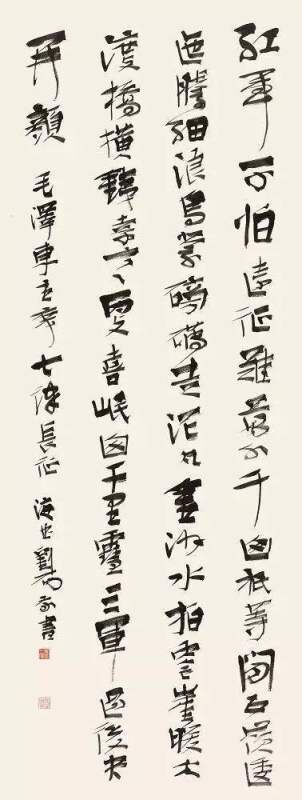 紅軍不怕遠征難萬水千山祇等閒五嶺逶
迤騰細浪烏蒙磅礴走泥丸金沙水拍雲崖暖大
渡橋橫鐵索寒更喜岷山千里雪三軍過後盡
開顏 毛澤東主席七律長征 劉書